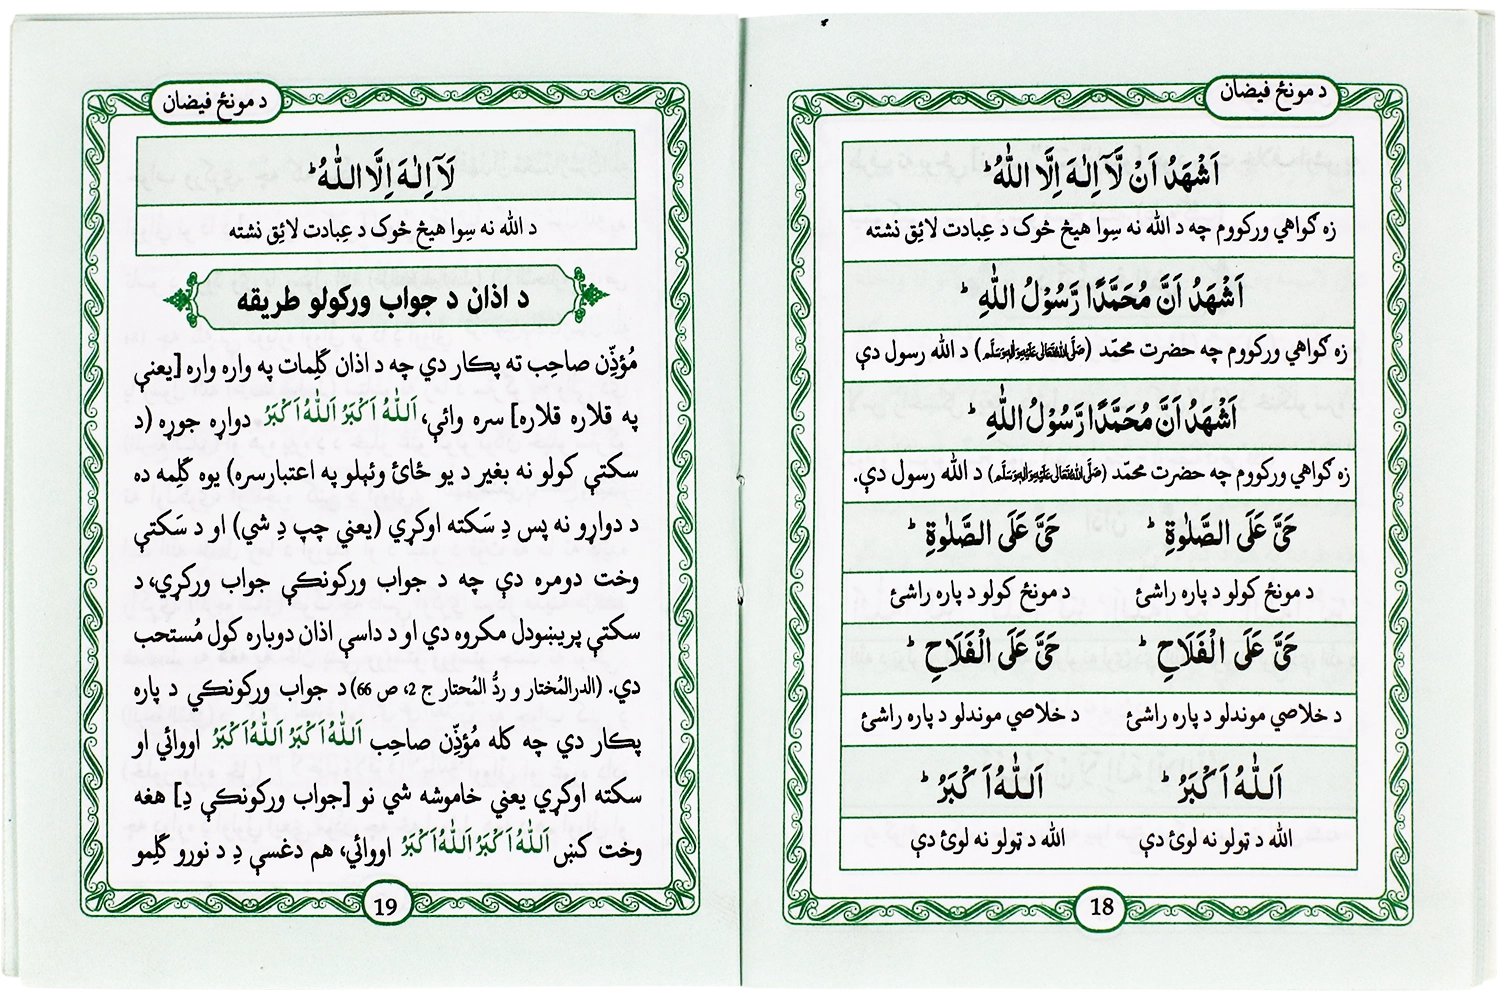 د مونځ فيضان
اَشْهَدُ اَنْ لَّآ اِلٰهَ اِلَّا اللّٰهُ ؕ
زه ګواهي ورکووم چه د الله نه سِوا هيڅ څوک د عِبادت لائِق نشته
اَشْهَدُ اَنَّ مُحَمَّدًا رَّسُوْلُ اللّٰهِ ؕ
زه ګواهي ورکووم چه حضرت محمّد (صَلَّى اللّٰهُ تَعَالٰى عَلَيْهِ وَاٰلِهٖ وَسَلَّم) د الله رسول دې
اَشْهَدُ اَنَّ مُحَمَّدًا رَّسُوْلُ اللّٰهِ ؕ
زه ګواهي ورکووم چه حضرت محمّد (صَلَّى اللّٰهُ تَعَالٰى عَلَيْهِ وَاٰلِهٖ وَسَلَّم) د الله رسول دې.
حَىَّ عَلَى الصَّلٰوةِ ؕ حَىَّ عَلَى الصَّلٰوةِ ؕ
د مونځ کولو د پاره راشئ د مونځ کولو د پاره راشئ
حَىَّ عَلَى الْفَلَاحِ ؕ حَىَّ عَلَى الْفَلَاحِ ؕ
د خلاصي موندلو د پاره راشئ د خلاصي موندلو د پاره راشئ
اَللّٰهُ اَكْبَرُ ؕ اَللّٰهُ اَكْبَرُ ؕ
الله د ټولو نه لوئ دې الله د ټولو نه لوئ دې
18
د مونځ فيضان
لَآ اِلٰهَ اِلَّا اللّٰهُ ؕ
د الله نه سِوا هيڅ څوک د عِبادت لائِق نشته
د اذان د جواب ورکولو طريقه
مُؤذِّن صاحِب ته پکار دي چه د اذان کَلِمات په واره واره [يعنې
په قلاره قلاره] سره وائې، اَللّٰهُ اَكْبَرُ اَللّٰهُ اَكْبَرُ دواړه جوړه (د
سکتې کولو نه بغير د يو ځائ وئېلو په اعتبارسره) يوه کَلِمه ده
د دواړو نه پس دِ سَکته اوکړي (يعني چپ دِ شي) او د سَکتې
وخت دومره دې چه د جواب ورکونکې جواب ورکړي، د
سکتې پريښودل مکروه دي او د داسې اذان دوباره کول مُستحب
دي. (الدرالمُختار و ردُّ المُحتار ج 2، ص 66) د جواب ورکونکي د پاره
پکار دي چه کله مُؤذِّن صاحِب اَللّٰهُ اَكْبَرُ اَللّٰهُ اَكْبَرُ اووائي او
سکته اوکړي يعني خاموشه شي نو [جواب ورکونکې دِ] هغه
وخت کښ اَللّٰهُ اَكْبَرُ اَللّٰهُ اَكْبَرُ اووائي، هم دغسې دِ د نورو کَلِمو
19